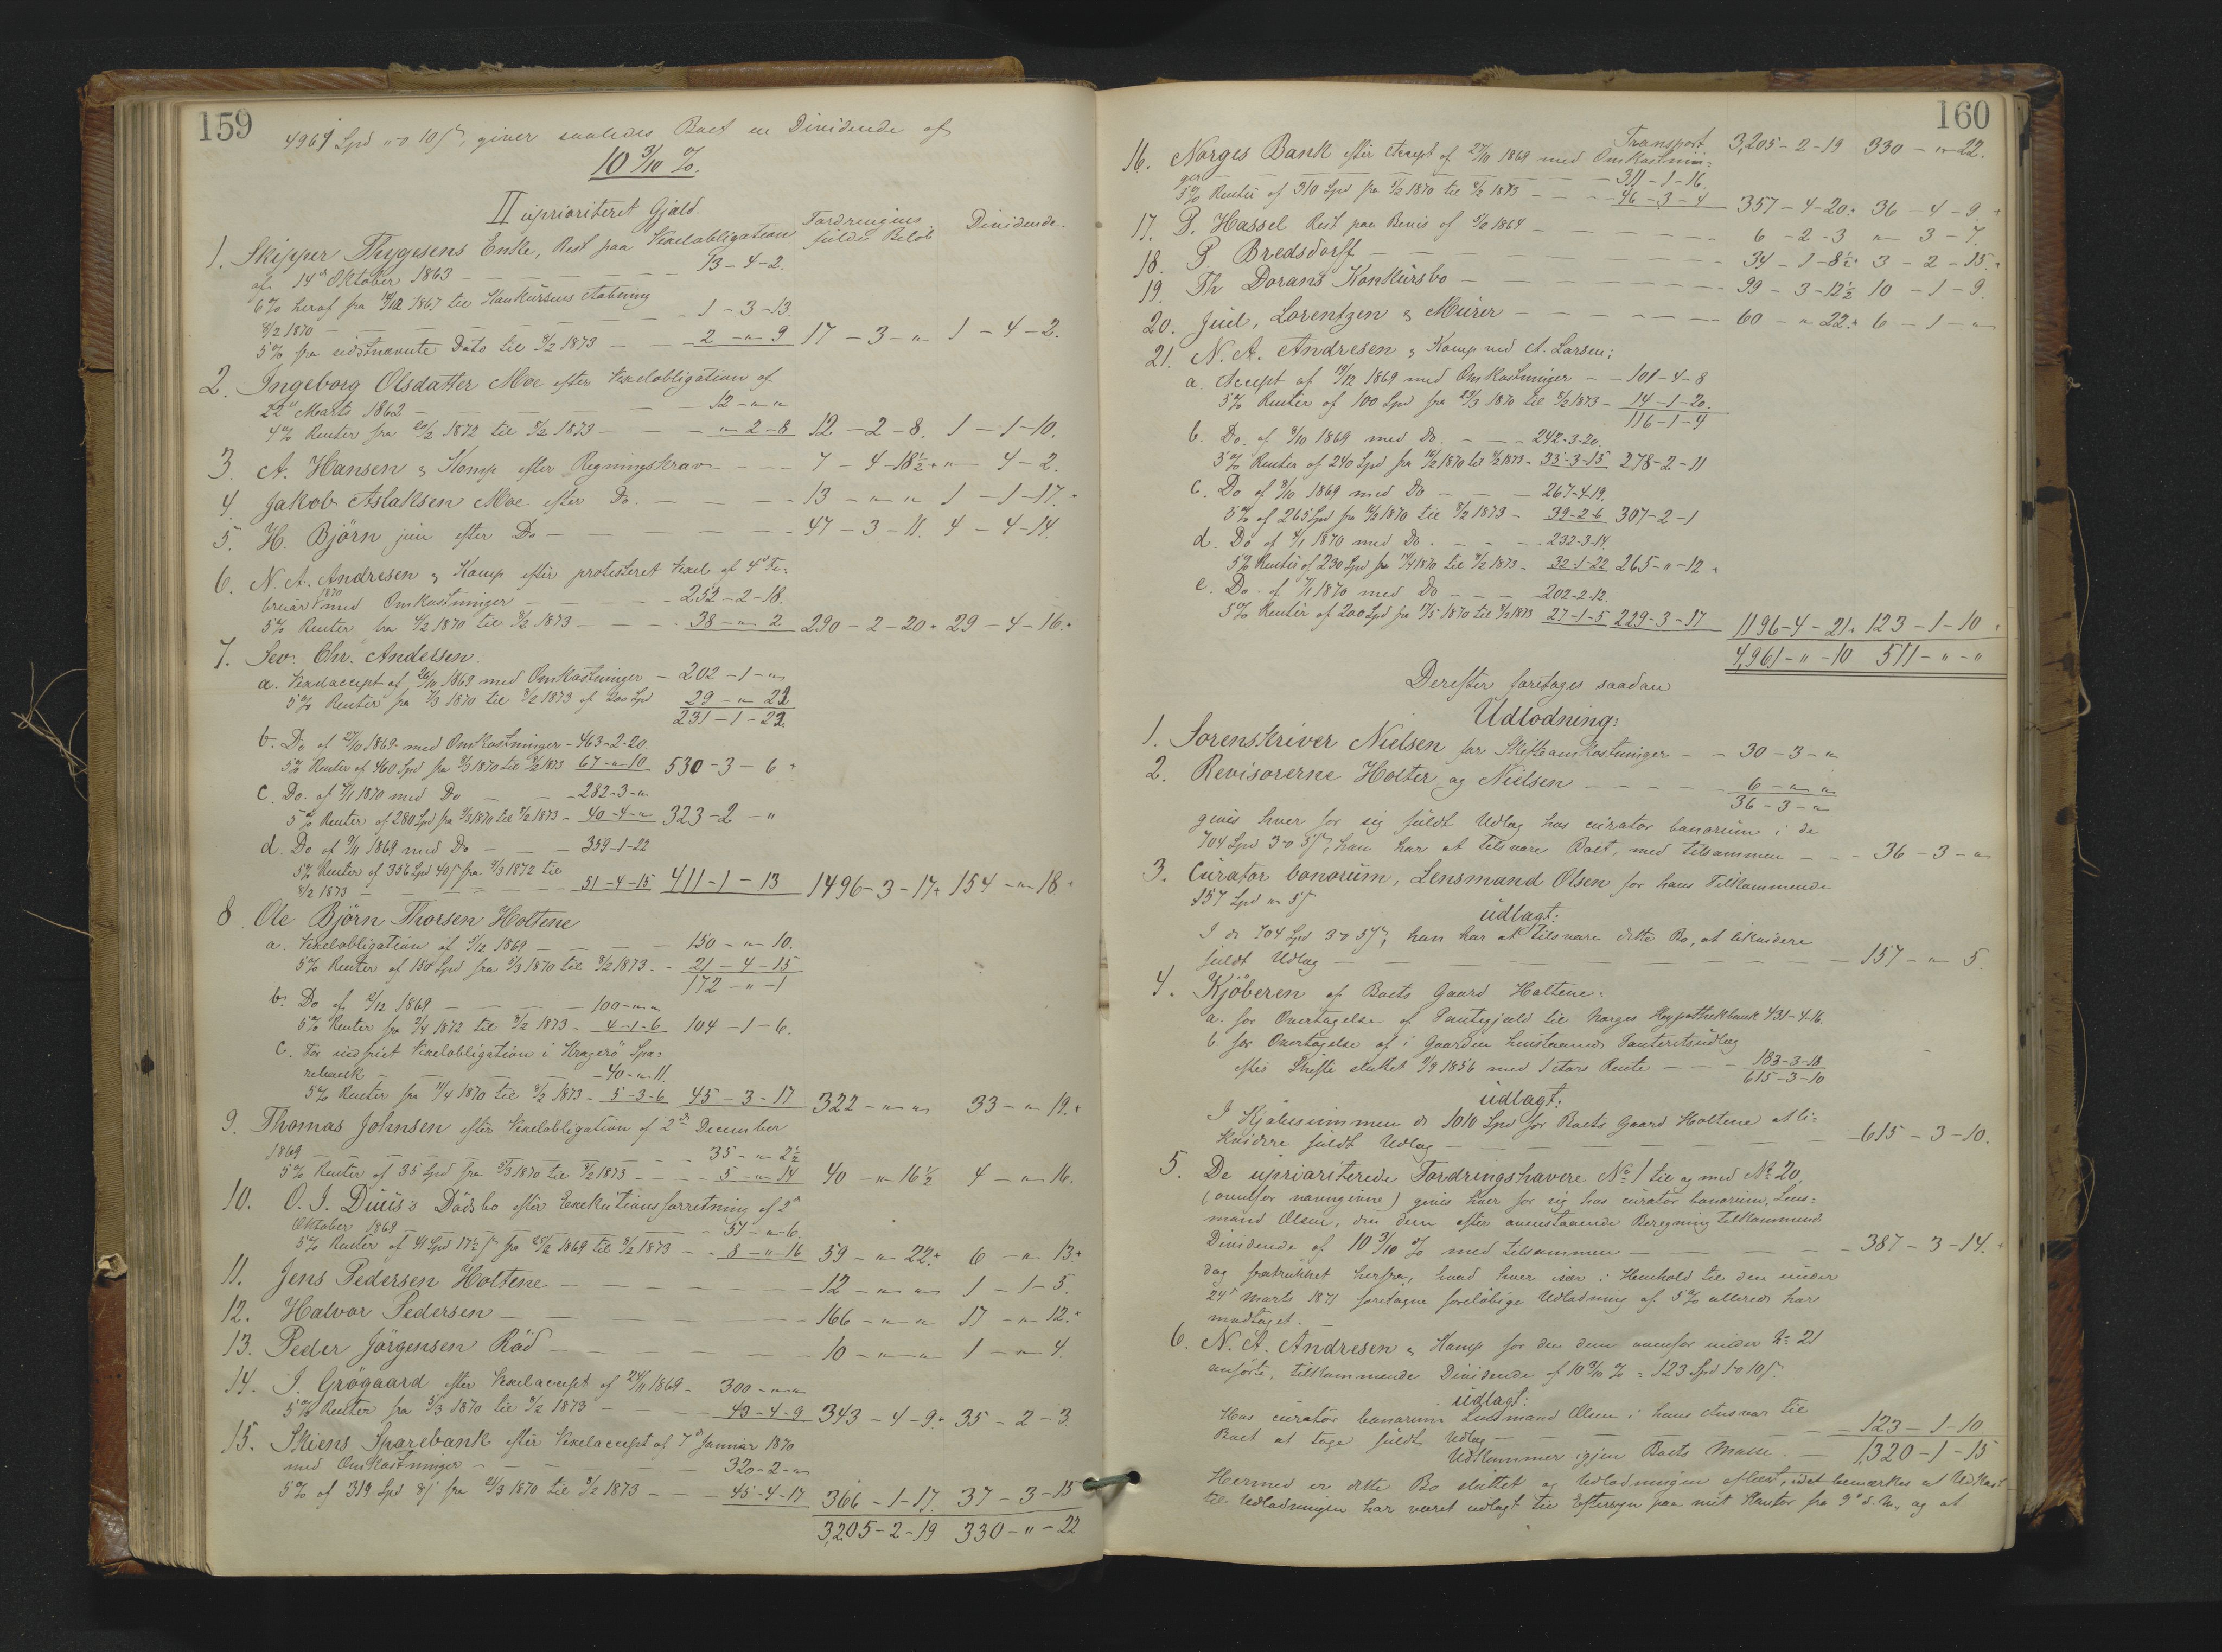 159
4961 Spd "o 10 ß, giver saaledes Boet en Dividende af
10 3/10 %.
II uprioriteret Gjæld.
Fordringens fulde Beløb Dividende.
1. Skipper Thygesens Enke, Rest paa Vexelobligation
af 14de Oktober 1863 — 13-4-2.
6% heraf fra 14/12 1867 til Konkursens Aabning
8/2 1870 — 1-3-13.
5% fra sidstnævnte Dato til 8/2 1873 — 2-"-9 17-3-" 1-4-2.
2. Ingeborg Olsdatter Moe efter Vexelobligation af
22de Marts 1862 — 12-"-"
4% Renter fra 20/2 1872 til 8/2 1873 — "-2-8 12-2-8. 1-1-10.
3. A. Hansen & Komp efter Regningskrav — 7-4-18½ "-4-2.
4. Jakob Aslaksen Moe efter Do. — 13-"-" 1-1-17.
5. H. Björn jun efter Do — 47-3-11. 4-4-14.
6. N. A. Andresen & Komp efter protesteret Vexel af 4de Fe:
bruar 1870 med Omkostninger — 252-2-18.
5% Renter fra 4/2 1870 til 8/2 1873 — 38-"-2 290-2-20. 29-4-16.
7. Sev. Chr. Andersen.
a. Vexelaccept af 26/10 1869 med Omkostninger — 202-1-"
5% Renter fra 7/3 1870 til 8/2 1873 af 200 Spd 29-"-22
231-1-22.
b. Do af 27/10 1869 med Omkostninger - 463-2-20.
5% Renter af 460 Spd fra 9/3 1870 til 8/2 1873 67-"-10 530-3-6
c. Do. af 7/1 1870 med Do — 282-3-"
5% Renter af 280 Spd fra 9/3 1870 til 8/2 1873 - 40-4-" 323-2-"
d. Do af 9/11 1869 med Do — 359-1-22
5% Renter af 356 Spd 40 ß fra 9/3 1872 til
8/2 1873 — 51-4-15 411-1-13 1496-3-17. 154-"-18
8. Ole Björn Thorsen Holtene
a. Vexelobligation af 5/12 1869 — 150-"-10.
5% Renter af 150 Spd fra 5/3 1870 til 8/2 1873 - 21-4-15
172-"-1
b. Do af 2/12 1869 — 100-"-"
5% Renter fra 9/4 1872 til 8/2 1873 - 4-1-6 104-1-6.
c. For indfriet Vexelobligation i Kragerö Spa:
rebank — 40-"-11.
5% Renter fra 11/4 1870 til 8/2 1873 - 5-3-6 45-3-17 322-"-" 33-"-19.
9. Thomas Johnsen efter Vexelobligation af 2den December
1869 — 35-"-2½
5% Renter af 35 Spd fra 5/3 1870 til 8/2 1873 — 5-"-14 40-"-16½ 4-"-16.
10. O. J. Duus's Dödsbo efter Exekutionsforretning af 2den
Oktober 1869 — 51-"-6.
5% Renter af 41 Spd 17½ ß fra 25/2 1869 til 8/2 1873 — 8-"-16 59-"-22. 6-"-13.
11. Jens Pedersen Holtene — 12-"-" 1-1-5.
12. Halvor Pedersen — 166-"-" 17-"-12.
13. Peder Jörgensen Röd — 10-"-" 1-"-4.
14. J. Grögaard efter Vexelaccept af 24/11 1869 - 300-"-"
5% Renter fra 5/3 1870 til 8/2 1873 — 43-4-9 343-4-9. 35-2-3
15. Skiens Sparebank efter Vexelaccept af 7de Januar 1870
med Omkostninger — 320-2-"
5% af 319 Spd 8 ß fra 24/3 1870 til 8/2 1873 — 45-4-17 366-1-17. 37-3-15
3,205-2-19 330-"-22
160
Transport 3,205-2-19 330-"-22.
16. Norges Bank efter Accept af 27/10 1869 med Omkostnin:
ger — 311-1-16.
5% Renter af 310 Spd fra 8/2 1870 til 8/2 1873 — 46-3-4 357-4-20. 36-4-9.
17. P. Hassel Rest paa Bevis af 5/2 1864 — 6-2-3 "-3-7.
18. P. Bredsdorff — 34-1-8½. 3-2-15.
19. Th Dorans Konkursbo — 99-3-12½ 10-1-9.
20. Juel, Lorentzen & Meürer — 60-"-22. 6-1-"
21. N. A. Andresen & Komp ved A. Larsen:
a. Accept af 19/12 1869 med Omkostninger — 101-4-8
5% Renter af 100 Spd fra 29/3 1870 til 8/2 1873 - 14-1-20.
116-1-4
b. Do. af 8/10 1869 med Do. — 242-3-20.
5% Renter af 240 Spd fra 12/2 1870 til 8/2 1873 - 35-3-15 278-2-11
c. Do af 9/10 1869 med Do — 267-4-19.
5% af 265 Spd fra 12/2 1870 til 8/2 1873 - 39-2-6 307-2-1
d. Do af 4/1 1870 med Do. — 232-3-14.
5% Renter af 230 Spd fra 14/4 1870 til 8/2 1873 - 32-1-22 265-"-12
e. Do. af 7/1 1870 med Do — 202-2-12.
5% Renter af 200 Spd fra 17/5 1870 til 8/2 1873 27-1-5 229-3-17 1196-4-21. 123-1-10
4,961-"-10 511-"-"
Derefter foretages saadan
Udlodning:
1. Sorenskriver Nielsen for Skifteomkostninger — 30-3-"
2. Revisorerne Holter og Nielsen — 6-"-"
36-3-"
givis hver for sig fuldt Udlæg hos curator bonorum i de
704 Spd 3 o 5 ß, han har at tilsvare Boet, med tilsammen — 36-3-"
3. Curator bonorum, Lensmand Olsen for hans Tilkommende
157 Spd " 5 ß
udlagt:
I de 704 Spd 3 o 5 ß, han har at tilsvare dette Bo, at likvidere
fuldt Udlæg — 157-"-5.
4. Kjöberen af Boets Gaard Holtene:
a. for Overtagelse af Pantegjæld til Norges Hypothekbank 431-4-16.
b. for Overtagelse af i Gaarden henstaaende Panteretsudlæg
efter Skifte sluttet 9/9 1856 med 1 Aars Rente — 183-3-18
615-3-10
udlagt:
I Kjöbesummen de 1010 Spd for Boets Gaard Holtene at li:
kvidere fuldt Udlæg — 615-3-10.
5. De uprioriterede Fordringshavere No 1 til og med No 20,
(ovenfor navngivne) givis hver for sig hos curator bonorum, Lens:
mand Olsen, den dem efter ovenstaaende Beregning tilkommende
Dividende af 10 3/10 % med tilsammen — 387-3-14.
dog fratrukket herfra, hvad hver især i Henhold til den under
24de Marts 1871 foretagne foreløbige Udlodning af 5% allerede har
modtaget. —
6. N. A. Andresen & Komp for den dem ovenfor under No 21
anførte, tilkommende Dividende af 10 3/10 % = 123 Spd 1 o 10 ß.
udlagt:
Hos curator bonorum Lensmand Olsen i hans Ansvar til
Boet at tage fuldt Udlæg — 123-1-10
Udkommer igjen Boets Masse. — 1,320-1-15
Hermed er dette Bo sluttet og Udlodningen afleest, idet bemærkes at Udkast
til Udlodningen har været udlagt til Eftersyn paa mit Kontor fra 9de d. M., og at